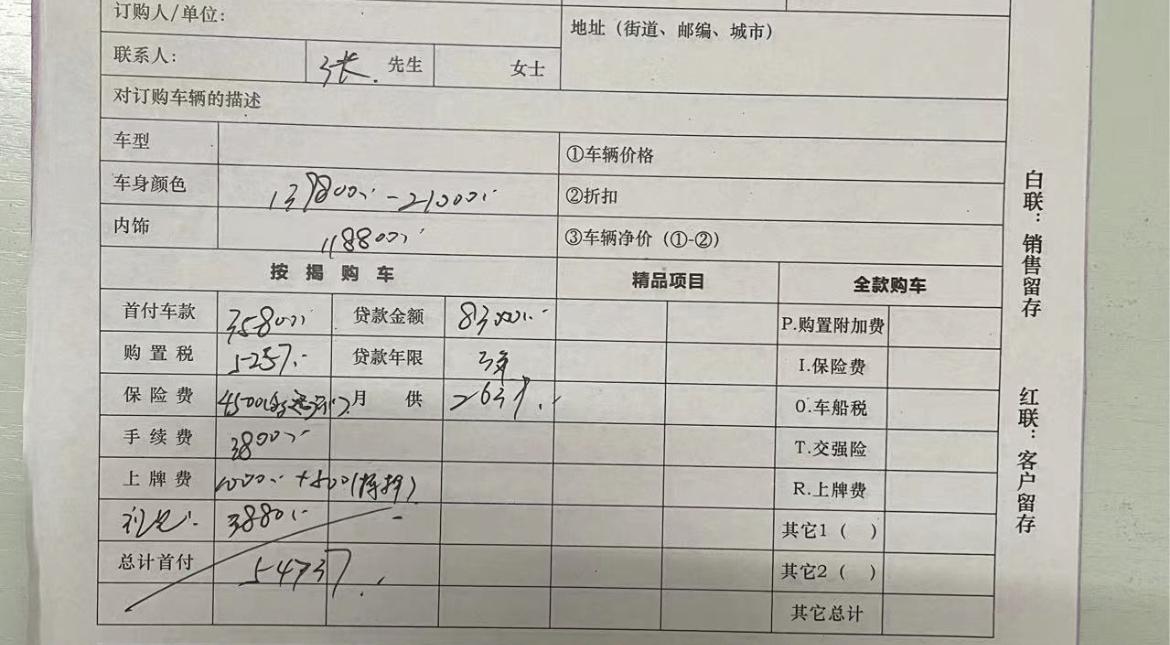 订购人/单位:
地址（街道、邮编、城市）
联系人: 张. 先生 女士
对订购车辆的描述
车型 ①车辆价格
车身颜色 139800 -21000 ②折扣
内饰 118800 ③车辆净价（①-②）
按揭购车 精品项目 全款购车
首付车款 35800 贷款金额 83000 P.购置附加费
购置税 5257 贷款年限 3年 I.保险费
保险费 4500 月供 2637 O.车船税
手续费 3800 T.交强险
上牌费 1000 +500 R.上牌费
3880 其它1（ ）
总计首付 54737 其它2（ ）
其它总计
白联：销售留存
红联：客户留存